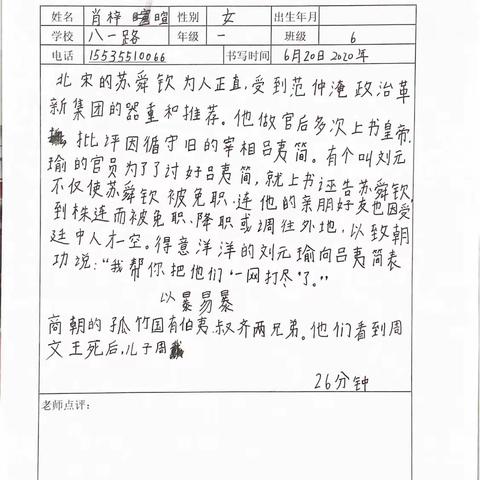 姓名 肖梓暄 性别 女 出生年月
学校 八一路 年级 一 班级 6
电话 15535510066 书写时间 6月20日2020年
北宋的苏舜钦为人正直,受到范仲淹政治革
新集团的器重和推荐。他做官后多次上书皇帝.
批评因循守旧的宰相吕夷简。有个叫刘元
瑜的官员为了了讨好吕夷简,就上书诬告苏舜钦.
不仅使苏舜钦被免职.连他的亲朋好友也因受
到株连而被免职、降职或调往外地,以致朝
廷中人才一空。得意洋洋的刘元瑜向吕夷简表
功说:“我帮你把他们‘一网打尽’了。”
以暴易暴
商朝的孤竹国有伯夷.叔齐两兄弟。他们看到周
文王死后,儿子周
26分钟
老师点评: